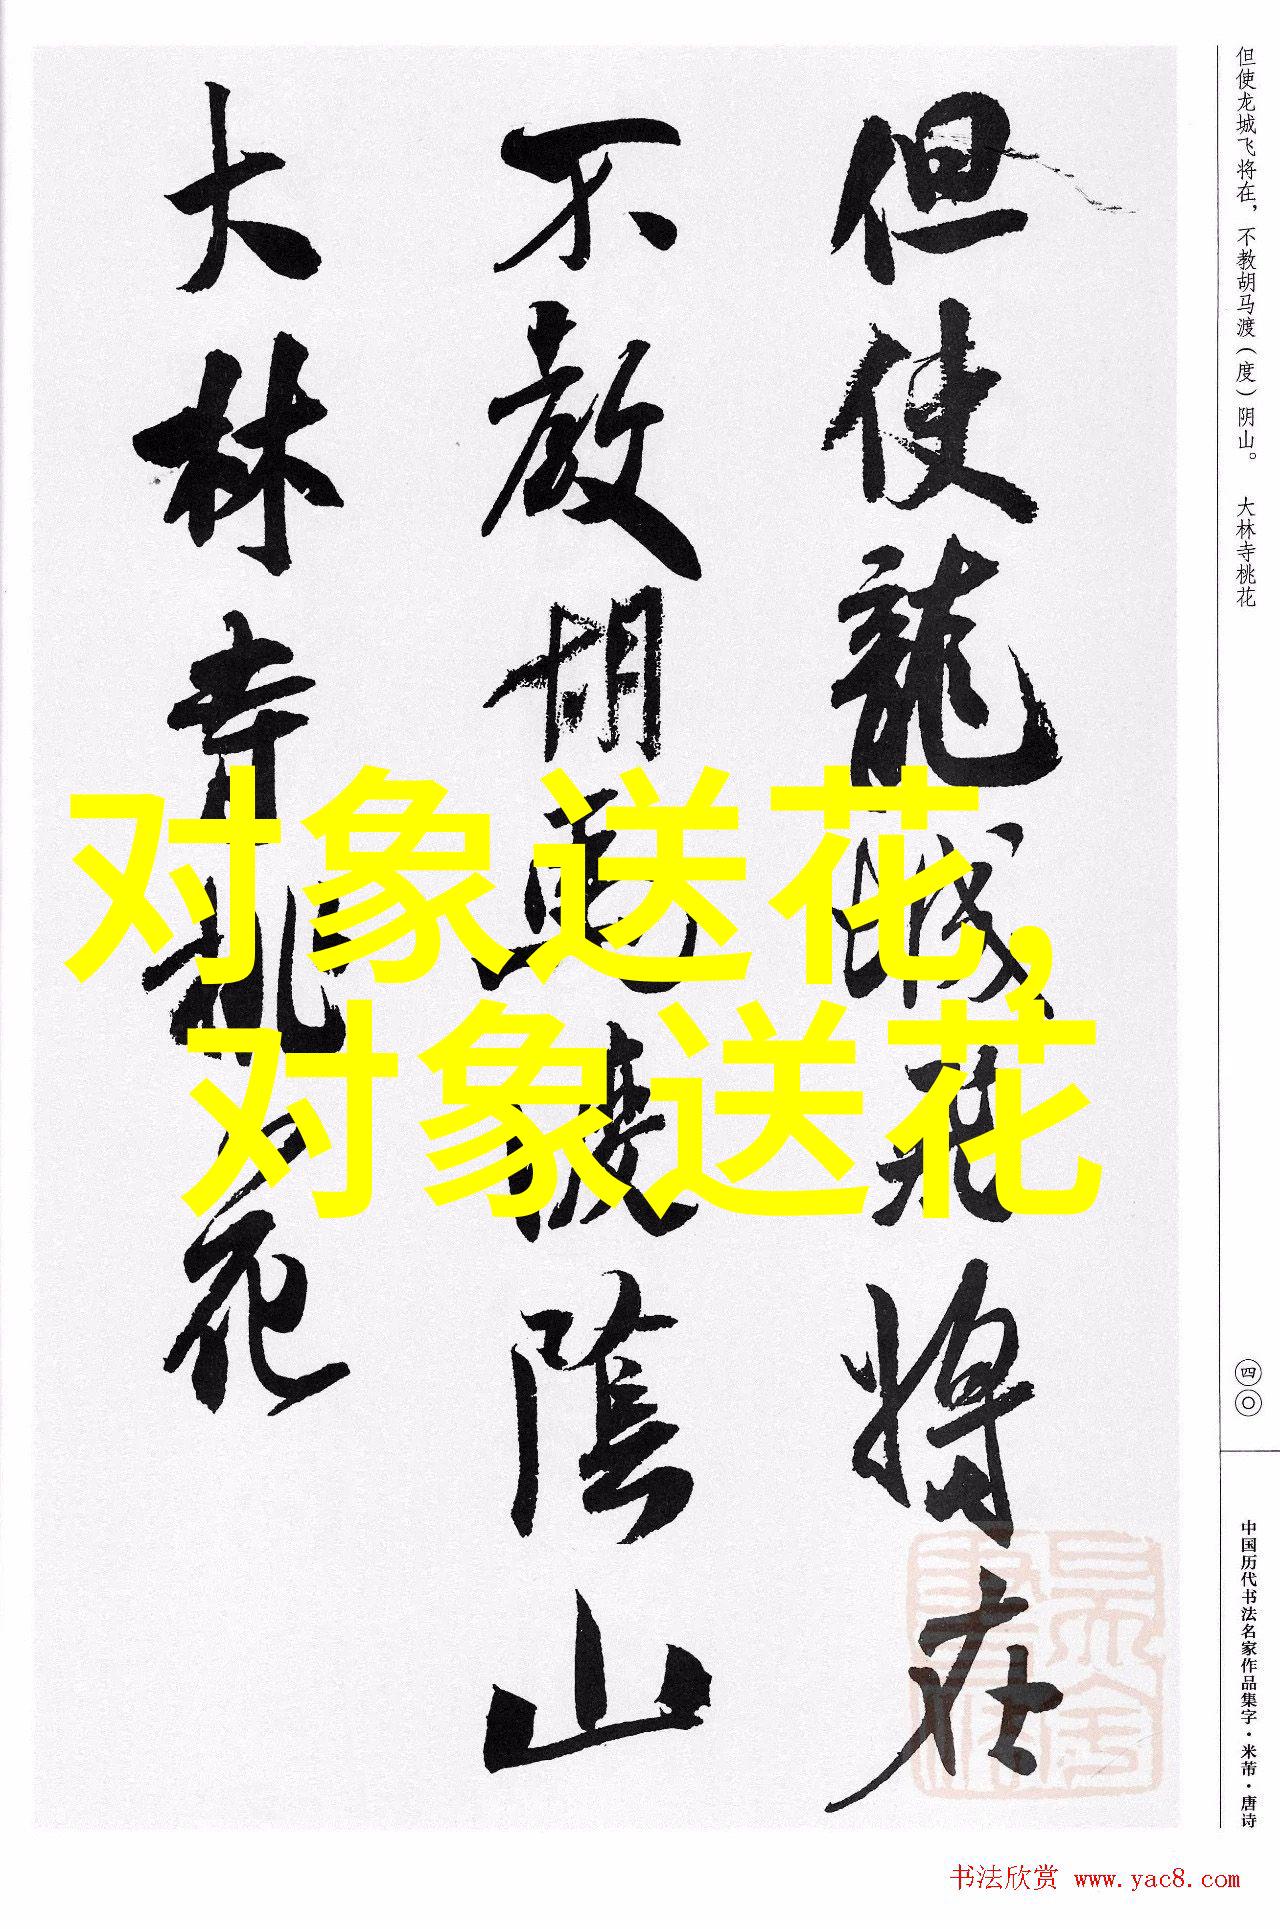 但使龍城飛將在
不教胡馬渡陰山
大林寺桃花
对象送花,
对象送花
但使龙城飞将在，不教胡马渡（度）阴山。 大林寺桃花
四〇
中国历代书法名家作品集字·米芾·唐诗
书法欣赏 www.yac8.com